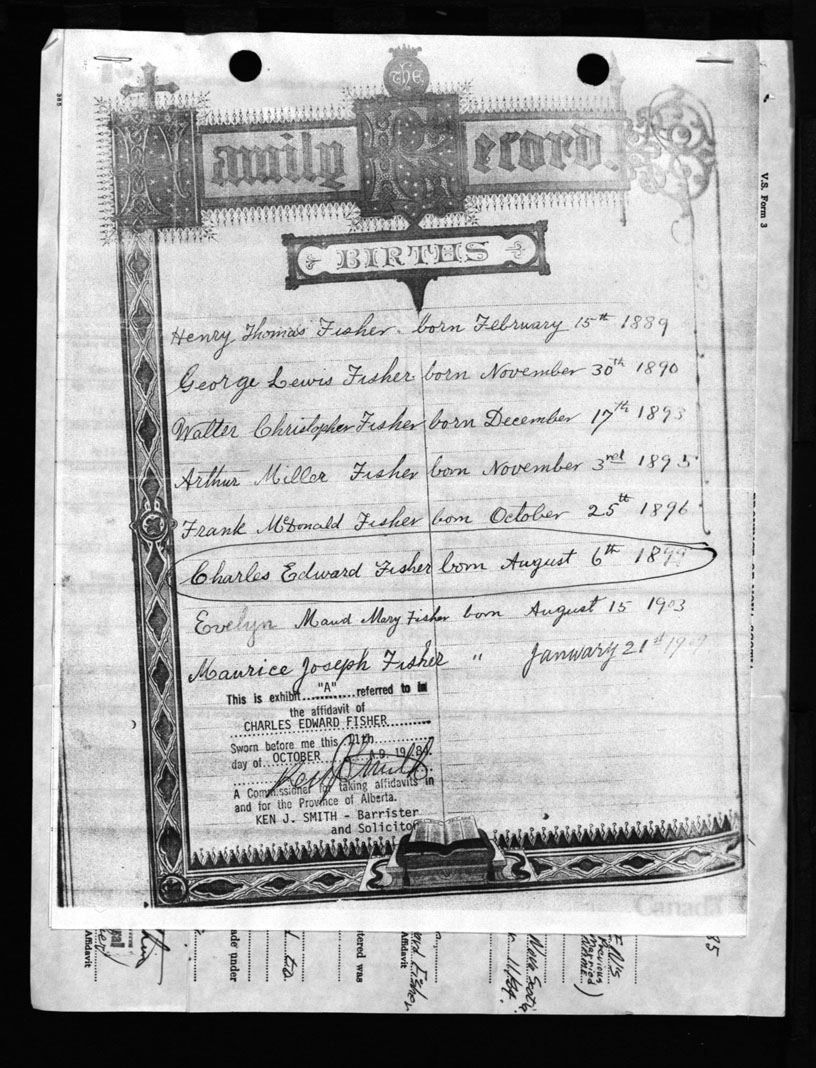 The
Family Record.
BIRTHS
Henry Thomas Fisher. born February 15th 1889
George Lewis Fisher born November 30th 1890
Walter Christopher Fisher born December 17th 1893
Arthur Miller Fisher born November 3rd 1895
Frank McDonald Fisher born October 25th 1896
Charles Edward Fisher born August 6th 1899
Evelyn Maud Mary Fisher born August 15 1903
Maurice Joseph Fisher " January 21st
This is exhibit "A" referred to in
the affidavit of
CHARLES EDWARD FISHER
Sworn before me this 11th
day of OCTOBER A.D. 1984.
A Commissioner for taking affidavits in
and for the Province of Alberta.
KEN J. SMITH - Barrister
and Solicitor
Canada
V.S. Form 3
Affidavit
ade under
tered was
Affidavit
Fisher
Nova Scotia
11/84.
(Previous
Married
Name)
35